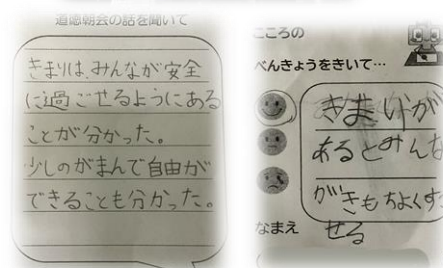 道徳朝会の話を聞いて
きまりは、みんなが安全
に過ごせるようにある
ことが分かった。
少しのがまんで自由が
できることも分かった。
こころの
べんきょうをきいて…
きまりが
あるとみんな
がきもちよくす
せる
なまえ